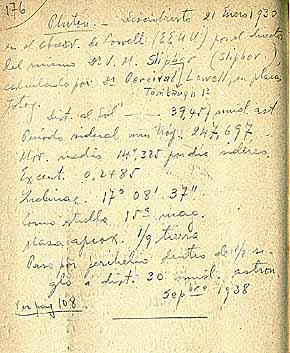 176
Pluton. - Descubierto 21 Enero 1930
en el observ. de Lowell (EEUU) por el direct
del mismo Dr V. M. Slipher (Slipher)
calculado por Dr Percival Lowell, en placa
fotog. Tombaugh
dist. al Sol 39'45 unid. ast
Periodo sideral 247,697
Mov. medio 14", 325 por dia sidereo.
Excent. 0,2485
Inclinac. 17º 08' 37"
Como estrella 15ª mag.
Masa aprox. 1/9 tierra
Paso por perihelio dentro de 1/2 si-
glo a dist. 30 unid. astron
Sepbre 1938
Ver pag 108